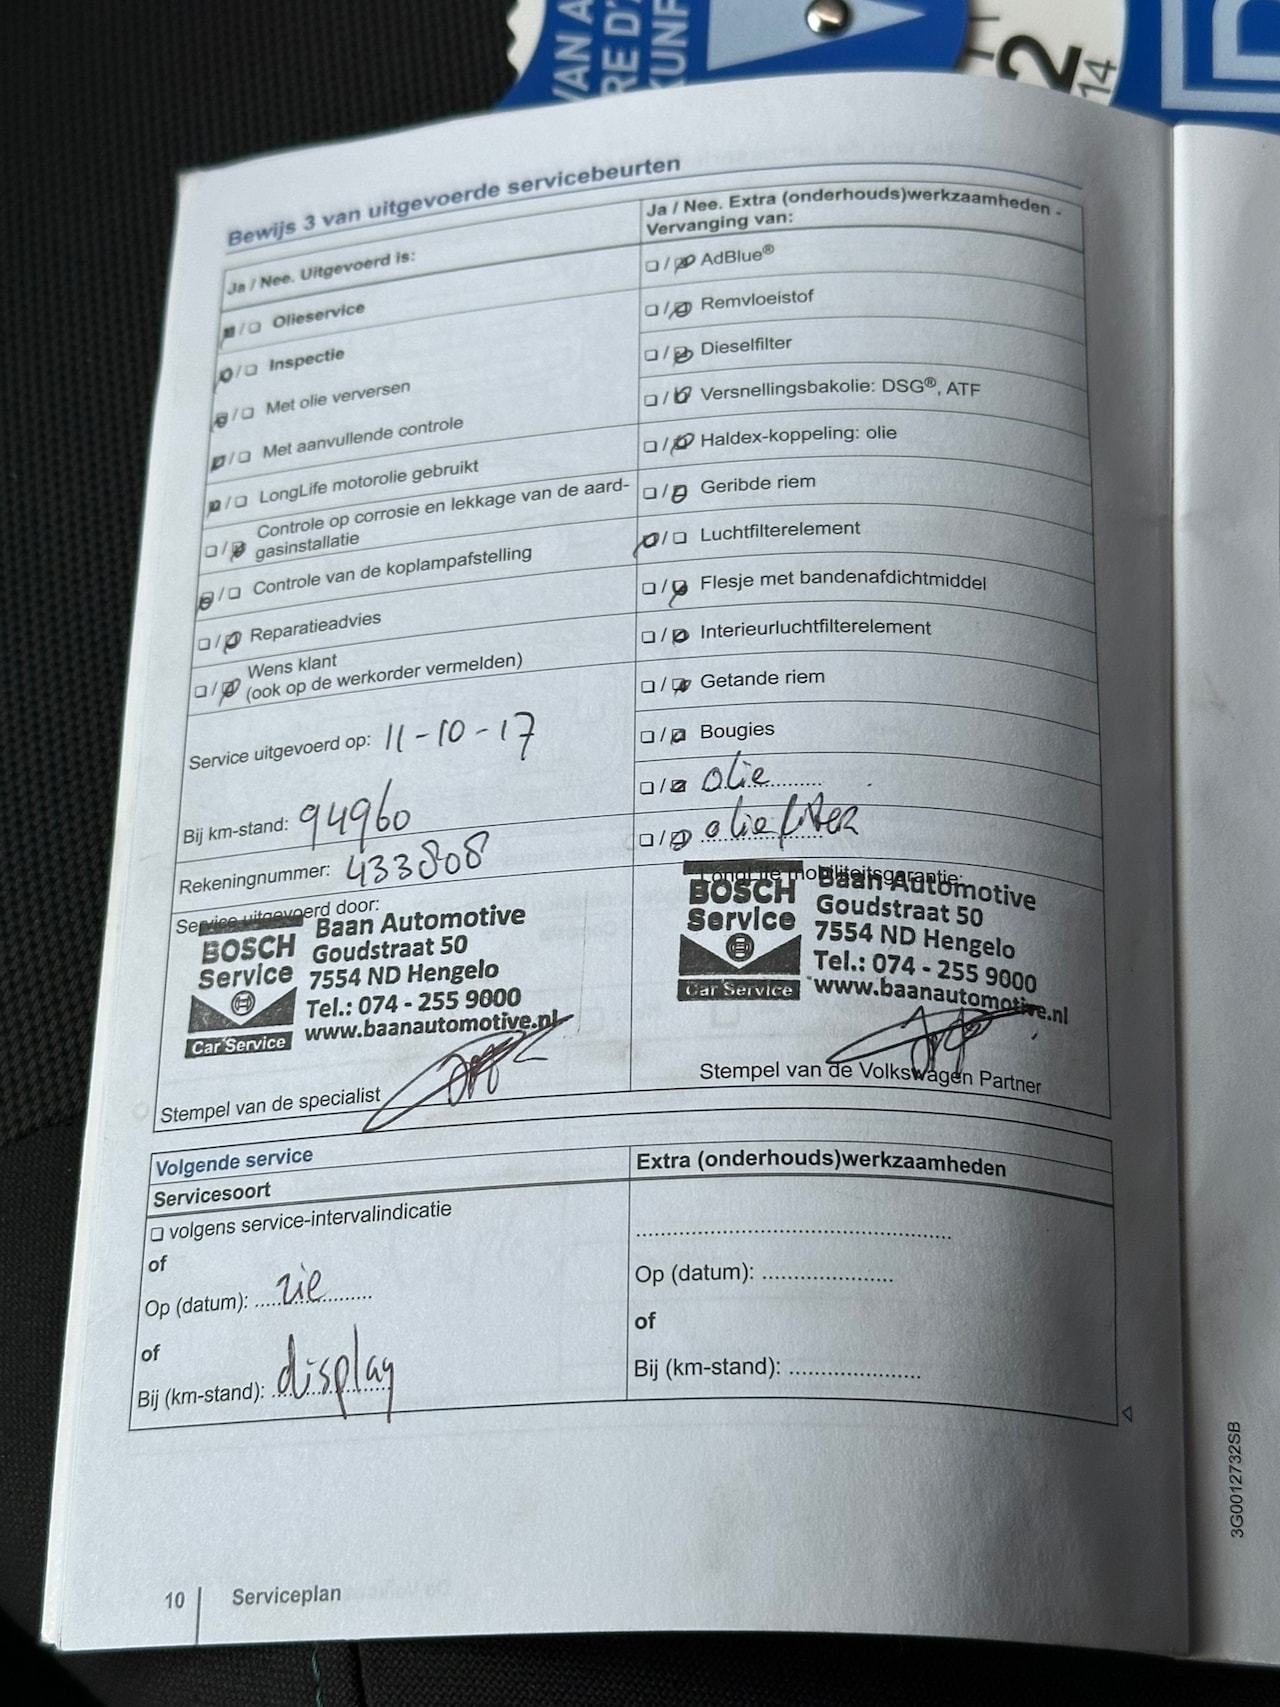 VAN A
RE D'
KUNF
2
14
Bewijs 3 van uitgevoerde servicebeurten
Ja / Nee. Uitgevoerd is:
/ Olieservice
/ Inspectie
/ Met olie verversen
/ Met aanvullende controle
/ LongLife motorolie gebruikt
/ Controle op corrosie en lekkage van de aard-
gasinstallatie
/ Controle van de koplampafstelling
/ Reparatieadvies
/ Wens klant
(ook op de werkorder vermelden)
Service uitgevoerd op: 11-10-17
Bij km-stand: 94960
Rekeningnummer: 433808
Service uitgevoerd door:
BOSCH
Service
Car Service
Baan Automotive
Goudstraat 50
7554 ND Hengelo
Tel.: 074 - 255 9000
www.baanautomotive.nl
Stempel van de specialist
Ja / Nee. Extra (onderhouds)werkzaamheden -
Vervanging van:
/ AdBlue®
/ Remvloeistof
/ Dieselfilter
/ Versnellingsbakolie: DSG®, ATF
/ Haldex-koppeling: olie
/ Geribde riem
/ Luchtfilterelement
/ Flesje met bandenafdichtmiddel
/ Interieurluchtfilterelement
/ Getande riem
/ Bougies
/ olie
/ oliefilter
LongLife mobiliteitsgarantie:
BOSCH
Service
Car Service
Baan Automotive
Goudstraat 50
7554 ND Hengelo
Tel.: 074 - 255 9000
www.baanautomotive.nl
Stempel van de Volkswagen Partner
Volgende service
Servicesoort
volgens service-intervalindicatie
of
Op (datum): zie
of
Bij (km-stand): display
Extra (onderhouds)werkzaamheden
Op (datum):
of
Bij (km-stand):
3G0012732SB
10
Serviceplan